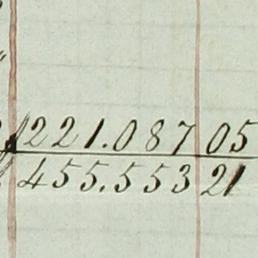 221.087 05
455.553 21